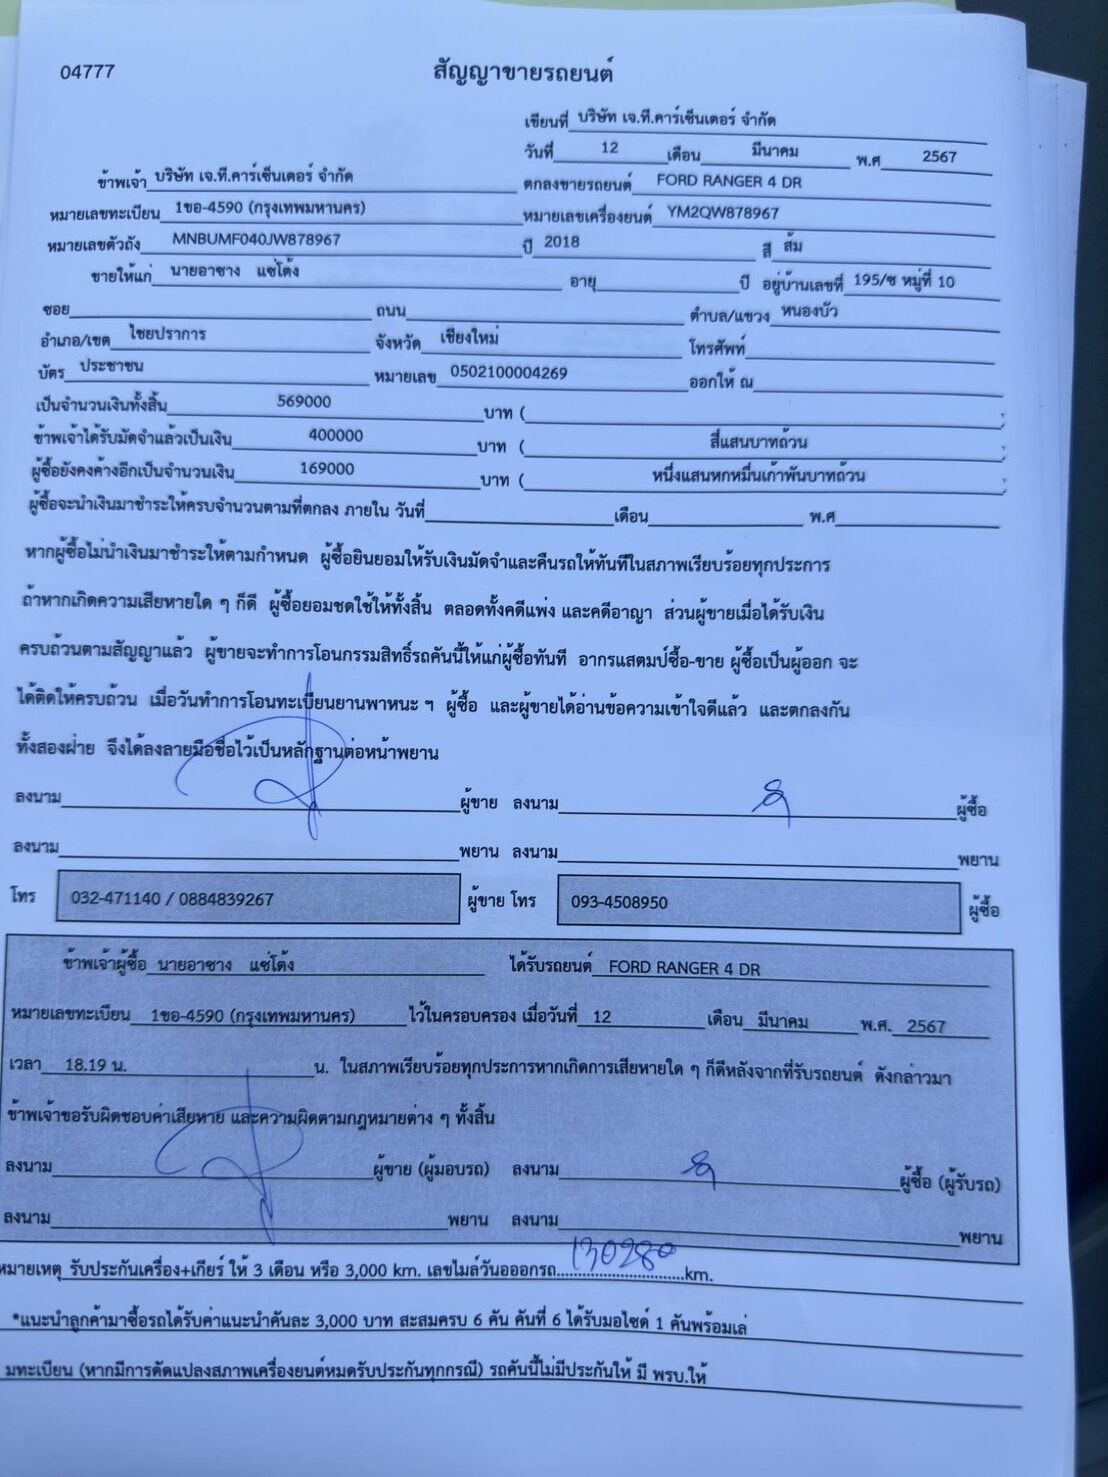 04777
สัญญาขายรถยนต์
เขียนที่ บริษัท เจ.ที.คาร์เซ็นเตอร์ จำกัด
วันที่ 12 เดือน มีนาคม พ.ศ 2567
ข้าพเจ้า บริษัท เจ.ที.คาร์เซ็นเตอร์ จำกัด ตกลงขายรถยนต์ FORD RANGER 4 DR
หมายเลขทะเบียน 1ขอ-4590 (กรุงเทพมหานคร) หมายเลขเครื่องยนต์ YM2QW878967
หมายเลขตัวถัง MNBUMF040JW878967 ปี 2018 สี ส้ม
ขายให้แก่ นายอาซาง แซ่โต้ง อายุ ปี อยู่บ้านเลขที่ 195/ซ หมู่ที่ 10
ซอย ถนน ตำบล/แขวง หนองบัว
อำเภอ/เขต ไชยปราการ จังหวัด เชียงใหม่ โทรศัพท์
บัตร ประชาชน หมายเลข 0502100004269 ออกให้ ณ
เป็นจำนวนเงินทั้งสิ้น 569000 บาท ( )
ข้าพเจ้าได้รับมัดจำแล้วเป็นเงิน 400000 บาท ( สี่แสนบาทถ้วน )
ผู้ซื้อยังคงค้างอีกเป็นจำนวนเงิน 169000 บาท ( หนึ่งแสนหกหมื่นเก้าพันบาทถ้วน )
ผู้ซื้อจะนำเงินมาชำระให้ครบจำนวนตามที่ตกลง ภายใน วันที่ เดือน พ.ศ
หากผู้ซื้อไม่นำเงินมาชำระให้ตามกำหนด ผู้ซื้อยินยอมให้รับเงินมัดจำและคืนรถให้ทันทีในสภาพเรียบร้อยทุกประการ
ถ้าหากเกิดความเสียหายใด ๆ ก็ดี ผู้ซื้อยอมชดใช้ให้ทั้งสิ้น ตลอดทั้งคดีแพ่ง และคดีอาญา ส่วนผู้ขายเมื่อได้รับเงิน
ครบถ้วนตามสัญญาแล้ว ผู้ขายจะทำการโอนกรรมสิทธิ์รถคันนี้ให้แก่ผู้ซื้อทันที อากรแสตมป์ซื้อ-ขาย ผู้ซื้อเป็นผู้ออก จะ
ได้ติดให้ครบถ้วน เมื่อวันทำการโอนทะเบียนยานพาหนะ ฯ ผู้ซื้อ และผู้ขายได้อ่านข้อความเข้าใจดีแล้ว และตกลงกัน
ทั้งสองฝ่าย จึงได้ลงลายมือชื่อไว้เป็นหลักฐานต่อหน้าพยาน
ลงนาม ผู้ขาย ลงนาม ผู้ซื้อ
ลงนาม พยาน ลงนาม พยาน
โทร 032-471140 / 0884839267 ผู้ขาย โทร 093-4508950 ผู้ซื้อ
ข้าพเจ้าผู้ซื้อ นายอาซาง แซ่โต้ง ได้รับรถยนต์ FORD RANGER 4 DR
หมายเลขทะเบียน 1ขอ-4590 (กรุงเทพมหานคร) ไว้ในครอบครอง เมื่อวันที่ 12 เดือน มีนาคม พ.ศ. 2567
เวลา 18.19 น. น. ในสภาพเรียบร้อยทุกประการหากเกิดการเสียหายใด ๆ ก็ดีหลังจากที่รับรถยนต์ ดังกล่าวมา
ข้าพเจ้าขอรับผิดชอบค่าเสียหาย และความผิดตามกฎหมายต่าง ๆ ทั้งสิ้น
ลงนาม ผู้ขาย (ผู้มอบรถ) ลงนาม ผู้ซื้อ (ผู้รับรถ)
ลงนาม พยาน ลงนาม พยาน
หมายเหตุ รับประกันเครื่อง+เกียร์ ให้ 3 เดือน หรือ 3,000 km. เลขไมล์วันออกรถ 130280 km.
*แนะนำลูกค้ามาซื้อรถได้รับค่าแนะนำคันละ 3,000 บาท สะสมครบ 6 คัน คันที่ 6 ได้รับมอไซด์ 1 คันพร้อมเล่
มทะเบียน (หากมีการดัดแปลงสภาพเครื่องยนต์หมดรับประกันทุกกรณี) รถคันนี้ไม่มีประกันให้ มี พรบ.ให้